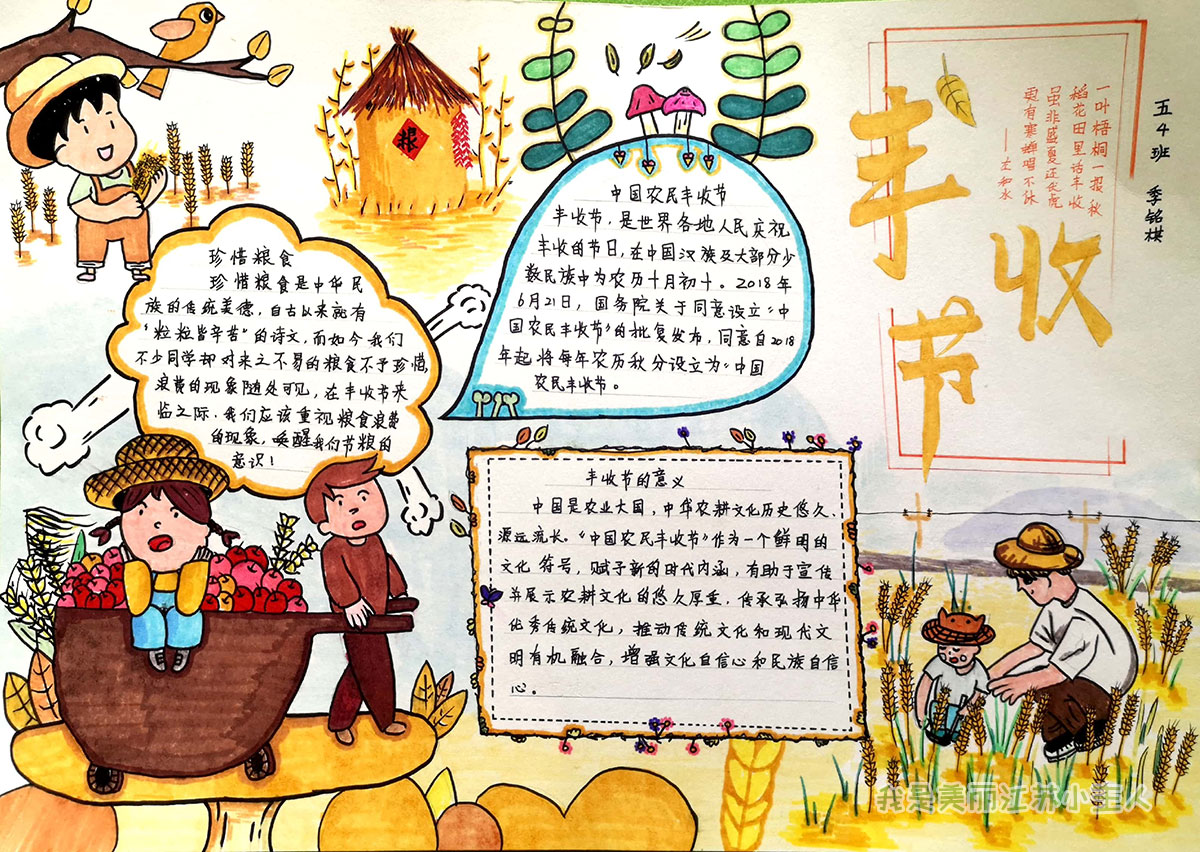 丰收节
一叶梧桐一报秋
稻花田里话丰收
虽非盛夏还伏虎
更有寒蝉唱不休
——左河水
五4班 季铭棋
根
中国农民丰收节
丰收节,是世界各地人民庆祝
丰收的节日,在中国汉族及大部分少
数民族中为农历十月初十。2018年
6月21日,国务院关于同意设立“中
国农民丰收节”的批复发布,同意自2018
年起将每年农历秋分设立为“中国
农民丰收节。
珍惜粮食
珍惜粮食是中华民
族的传统美德,自古以来就有
“粒粒皆辛苦”的诗文,而如今我们
不少同学却对来之不易的粮食不予珍惜,
浪费的现象随处可见,在丰收节来
临之际,我们应该重视粮食浪费
的现象,唤醒我们节粮的
意识!
丰收节的意义
中国是农业大国,中华农耕文化历史悠久、
源远流长。“中国农民丰收节”作为一个鲜明的
文化符号,赋予新的时代内涵,有助于宣传
并展示农耕文化的悠久厚重,传承弘扬中华
优秀传统文化,推动传统文化和现代文
明有机融合,增强文化自信心和民族自信
心。
我是美丽江淋小主人